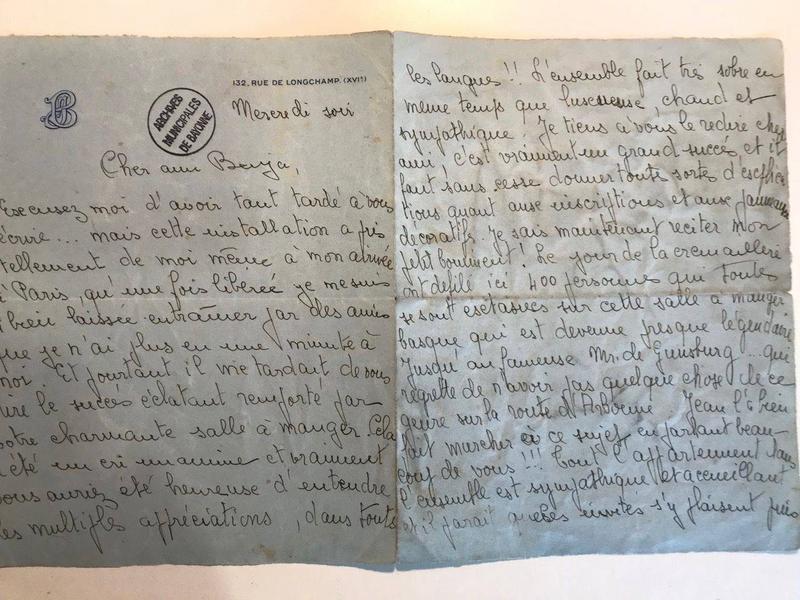 132, RUE DE LONGCHAMP. (XVIe)
ARCHIVES
MUNICIPALES
DE BAYONNE
Mercredi soir
Cher ami Benja,
Excusez moi d'avoir tant tardé à vous
écrire... mais cette installation a pris
tellement de moi même à mon arrivée
à Paris, qu'une fois libérée je me suis
si bien laissée entraîner par des amies
que je n'ai plus eu une minute à
moi. Et pourtant il me tardait de vous
dire le succès éclatant remporté par
votre charmante salle à manger. Cela
a été un cri unanime et vraiment
vous auriez été heureuse d'entendre
les multiples appréciations, dans toutes
les langues!! L'ensemble fait très sobre en
même temps que luxueuse, chaud et
sympathique. Je tiens à vous le redire cher
ami, c'est vraiment un grand succès et il
faut sans cesse donner toute sortes d'explica
tions quant aux inscriptions et aux panneaux
décoratifs. Je sais maintenant réciter mon
petit boniment! Le jour de la cremaillère
ont défilé ici 400 personnes qui toutes
se sont extasiées sur cette salle à manger
basque qui est devenue presque légendaire
Jusqu'au fameuse Mr. de Gunsburg... qui
regrette de n'avoir pas quelque chose de ce
genre sur la route d'Arbonne. Jean l'a bien
fait marcher à ce sujet en parlant beau-
coup de vous!!! Tout l'appartement dans
l'ensemble est sympathique et accueillant
et il parait que les invités s'y plaisent puis